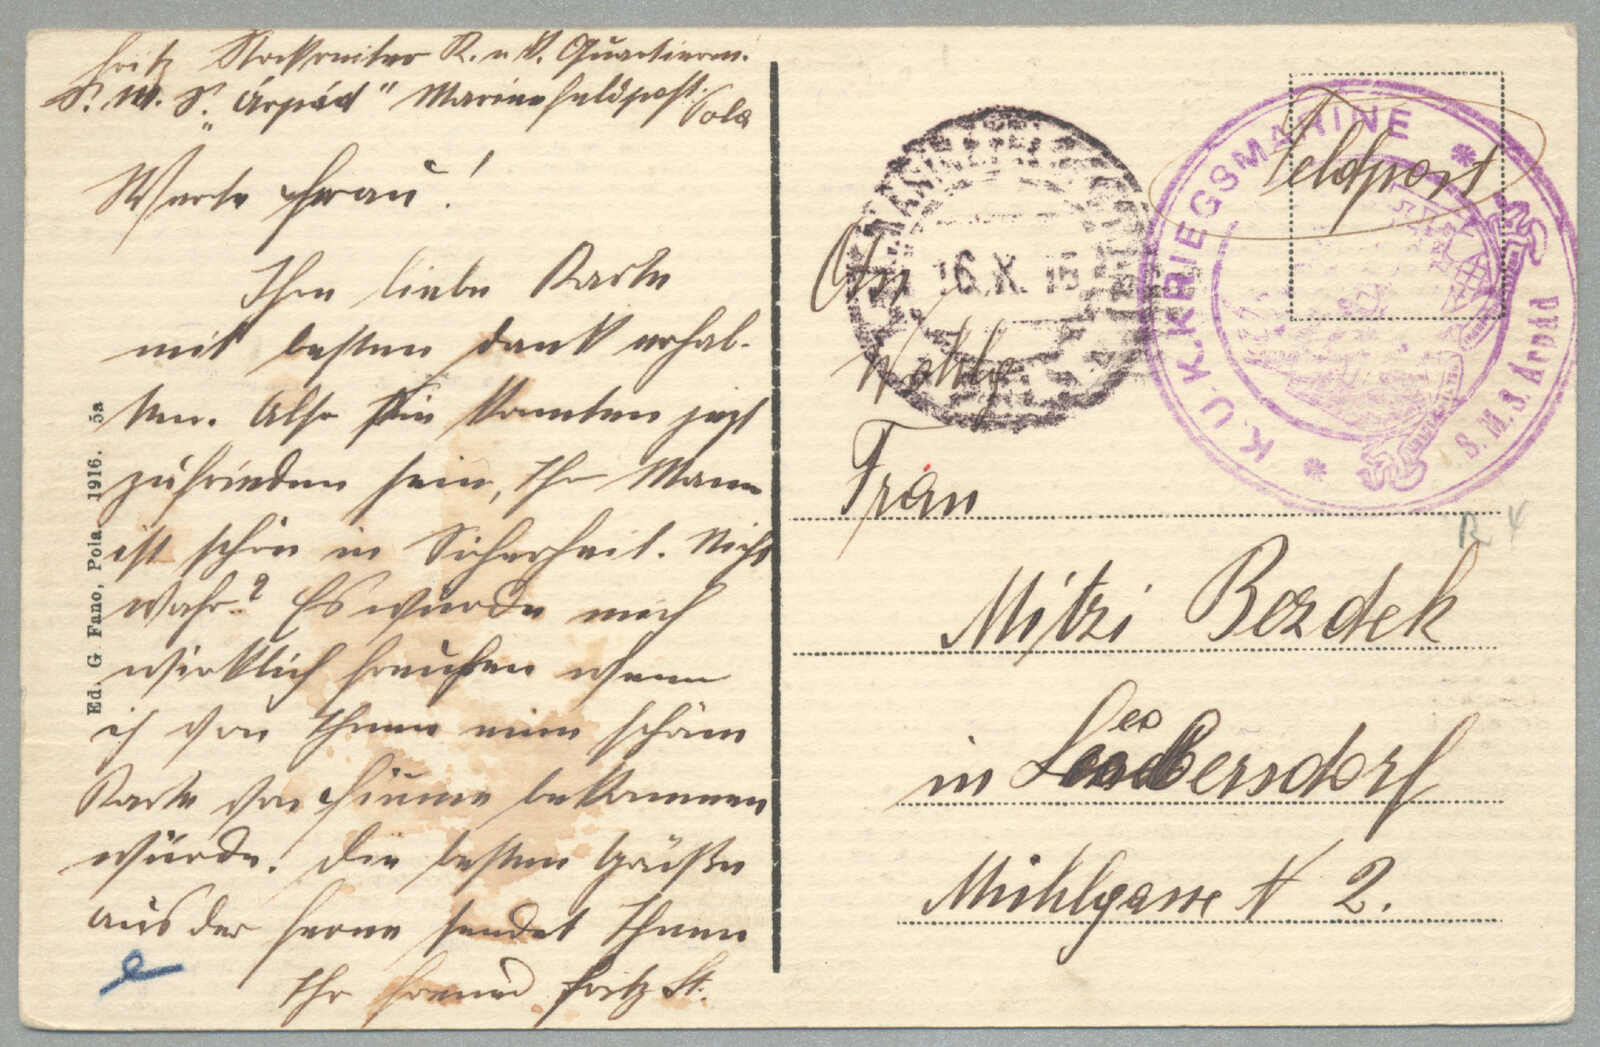 Fritz Stockreiter K. u. K. Quartierm.
S. M. S. „Árpád" Marinefeldpost Pola
Werte Frau!
Ihre liebe Karte
mit besten dank erhal-
ten. Also Sie konnten jezt
zufrieden sein, Ihr Mann
ist schon in Sicherheit. Nicht
wahr? Es wurde mich
wirklich freuhen wenn
ich von Ihnen eine schöne
Karte von Fiume bekommen
würde. Die besten Grüße
aus der ferne sendet Ihnen
Ihr Freund Fritz St.
Ed. G. Fano, Pola 1916. 5a
Feldpost
K. U. K. KRIEGSMARINE
S. M. S. Árpád
16. X. 16
An
Wohlg.
Frau
Mitzi Bezdek
in Leobersdorf
Mühlgasse N 2.